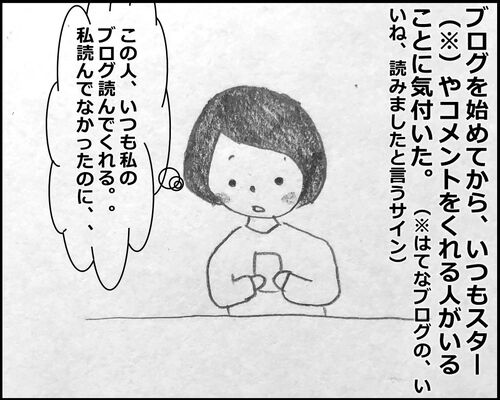 ブログを始めてから、いつもスター
（※）やコメントをくれる人がいる
ことに気付いた。（※はてなブログの、い
いね、読みましたと言うサイン）
この人、いつも私の
ブログ読んでくれる。。
私読んでなかったのに、、